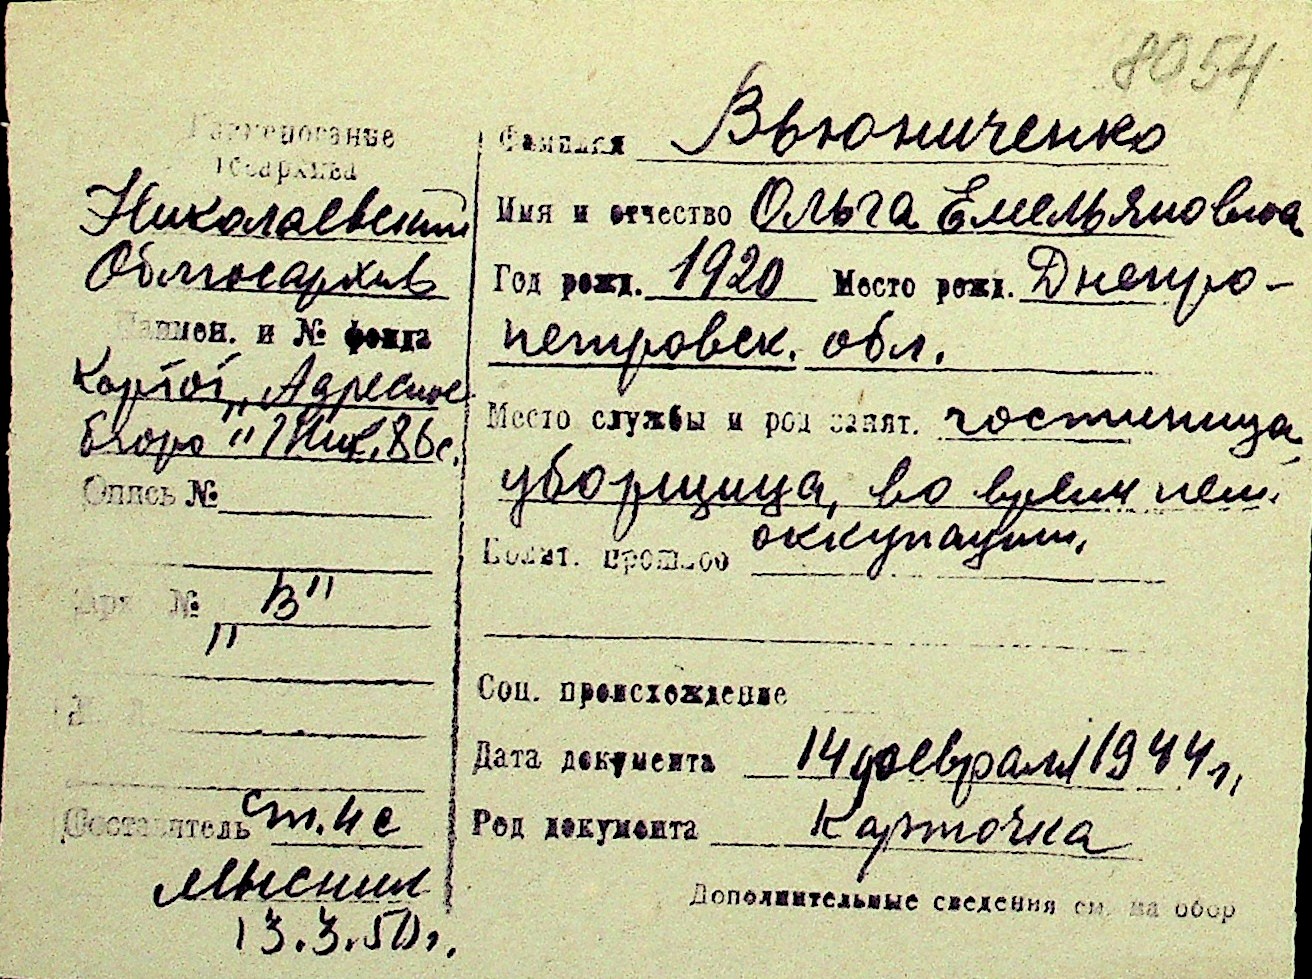 8054
Наименование
госархива
Николаевский
Облгосархив
Наимен. и № фонда
Картот. „Адресное
бюро"
Опись №
Арх. № „В"
Составитель ст. н с
13.3.50г.
Фамилия Вьюниченко
Имя и отчество Ольга Емельяновна
Год рожд. 1920 Место рожд. Днепро-
петровск. обл.
Место службы и род занят. гостиница,
уборщица, во время нем.
оккупации.
Полит. прошлое
Соц. происхождение
Дата документа 14 февраля 1944 г.
Род документа Карточка
Дополнительные сведения см. на обор